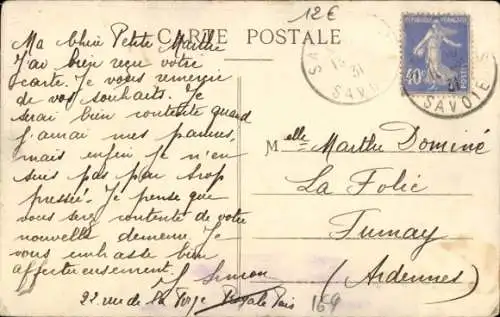 12€
CARTE POSTALE
Ma Chère Petite Marthe
J'ai bien reçu votre
carte. Je vous remercie
de vos souhaits. Je
serai bien contente quand
j'aurai mes pannes,
mais enfin je n'en
suis pas par trop
pressée. Je pense que
vous serez contente de votre
nouvelle demeure. Je
vous embrasse bien
affectueusement.
S Simon
22 rue de la Forge Royale Paris
REPUBLIQUE FRANÇAISE
40c
31
SAVOIE
Melle Marthe Dominé
La Folie
Fumay
(Ardennes)
169